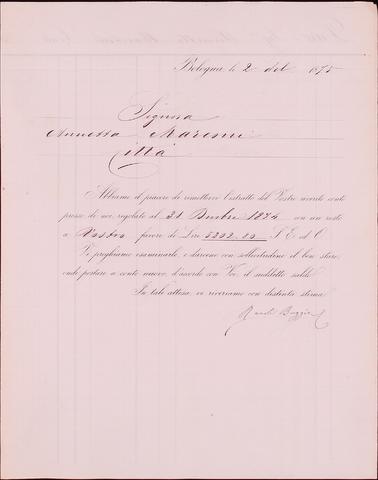 Bologna li 2 del 1875
Signora
Annetta Maresni
Città
Abbiamo il piacere di rimettervi l'estratto del Vostro ricordo conto
presso di noi, regolato al 31 Dmbre 1874 con un resto
a Vostro favore di Lire 5202.80 S. E. ed O.
Vi preghiamo esaminarlo, e darcene con sollecitudine il ben stare,
onde portare a conto nuovo, d'accordo con Voi, il suddetto saldo.
In tale attesa, vi riveriamo con distinta stima